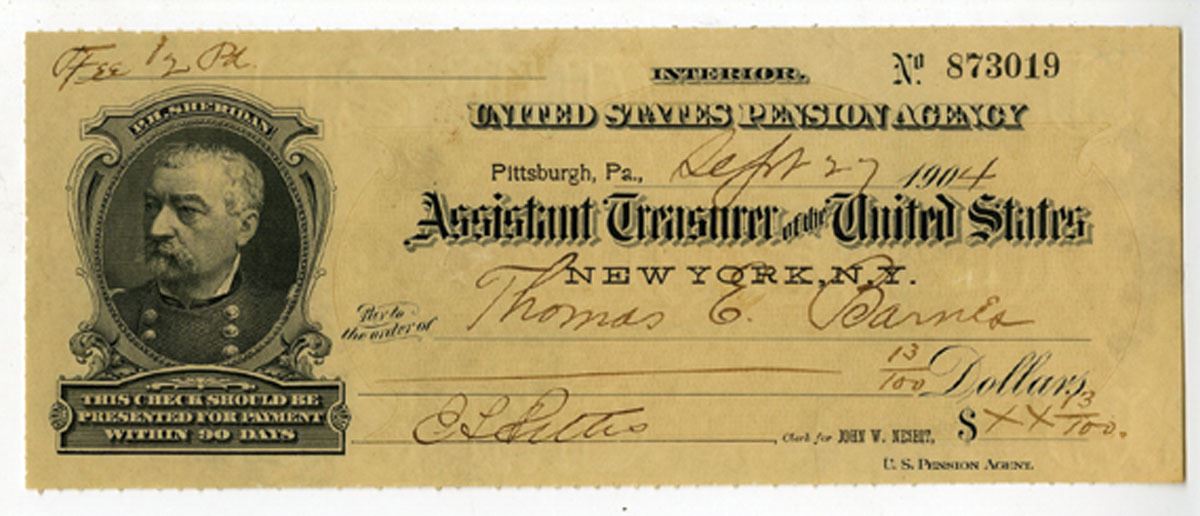 Fee 12 Pd.
INTERIOR.
No 873019
P.H. SHERIDAN
UNITED STATES PENSION AGENCY
Pittsburgh, Pa., Sept 27 1904
Assistant Treasurer of the United States
NEW YORK, N.Y.
Pay to the order of Thomas E. Barnes
13/100 Dollars,
THIS CHECK SHOULD BE
PRESENTED FOR PAYMENT
WITHIN 90 DAYS
, Clerk for JOHN W. NESBIT, $ XX 13/100.
U. S. PENSION AGENT.